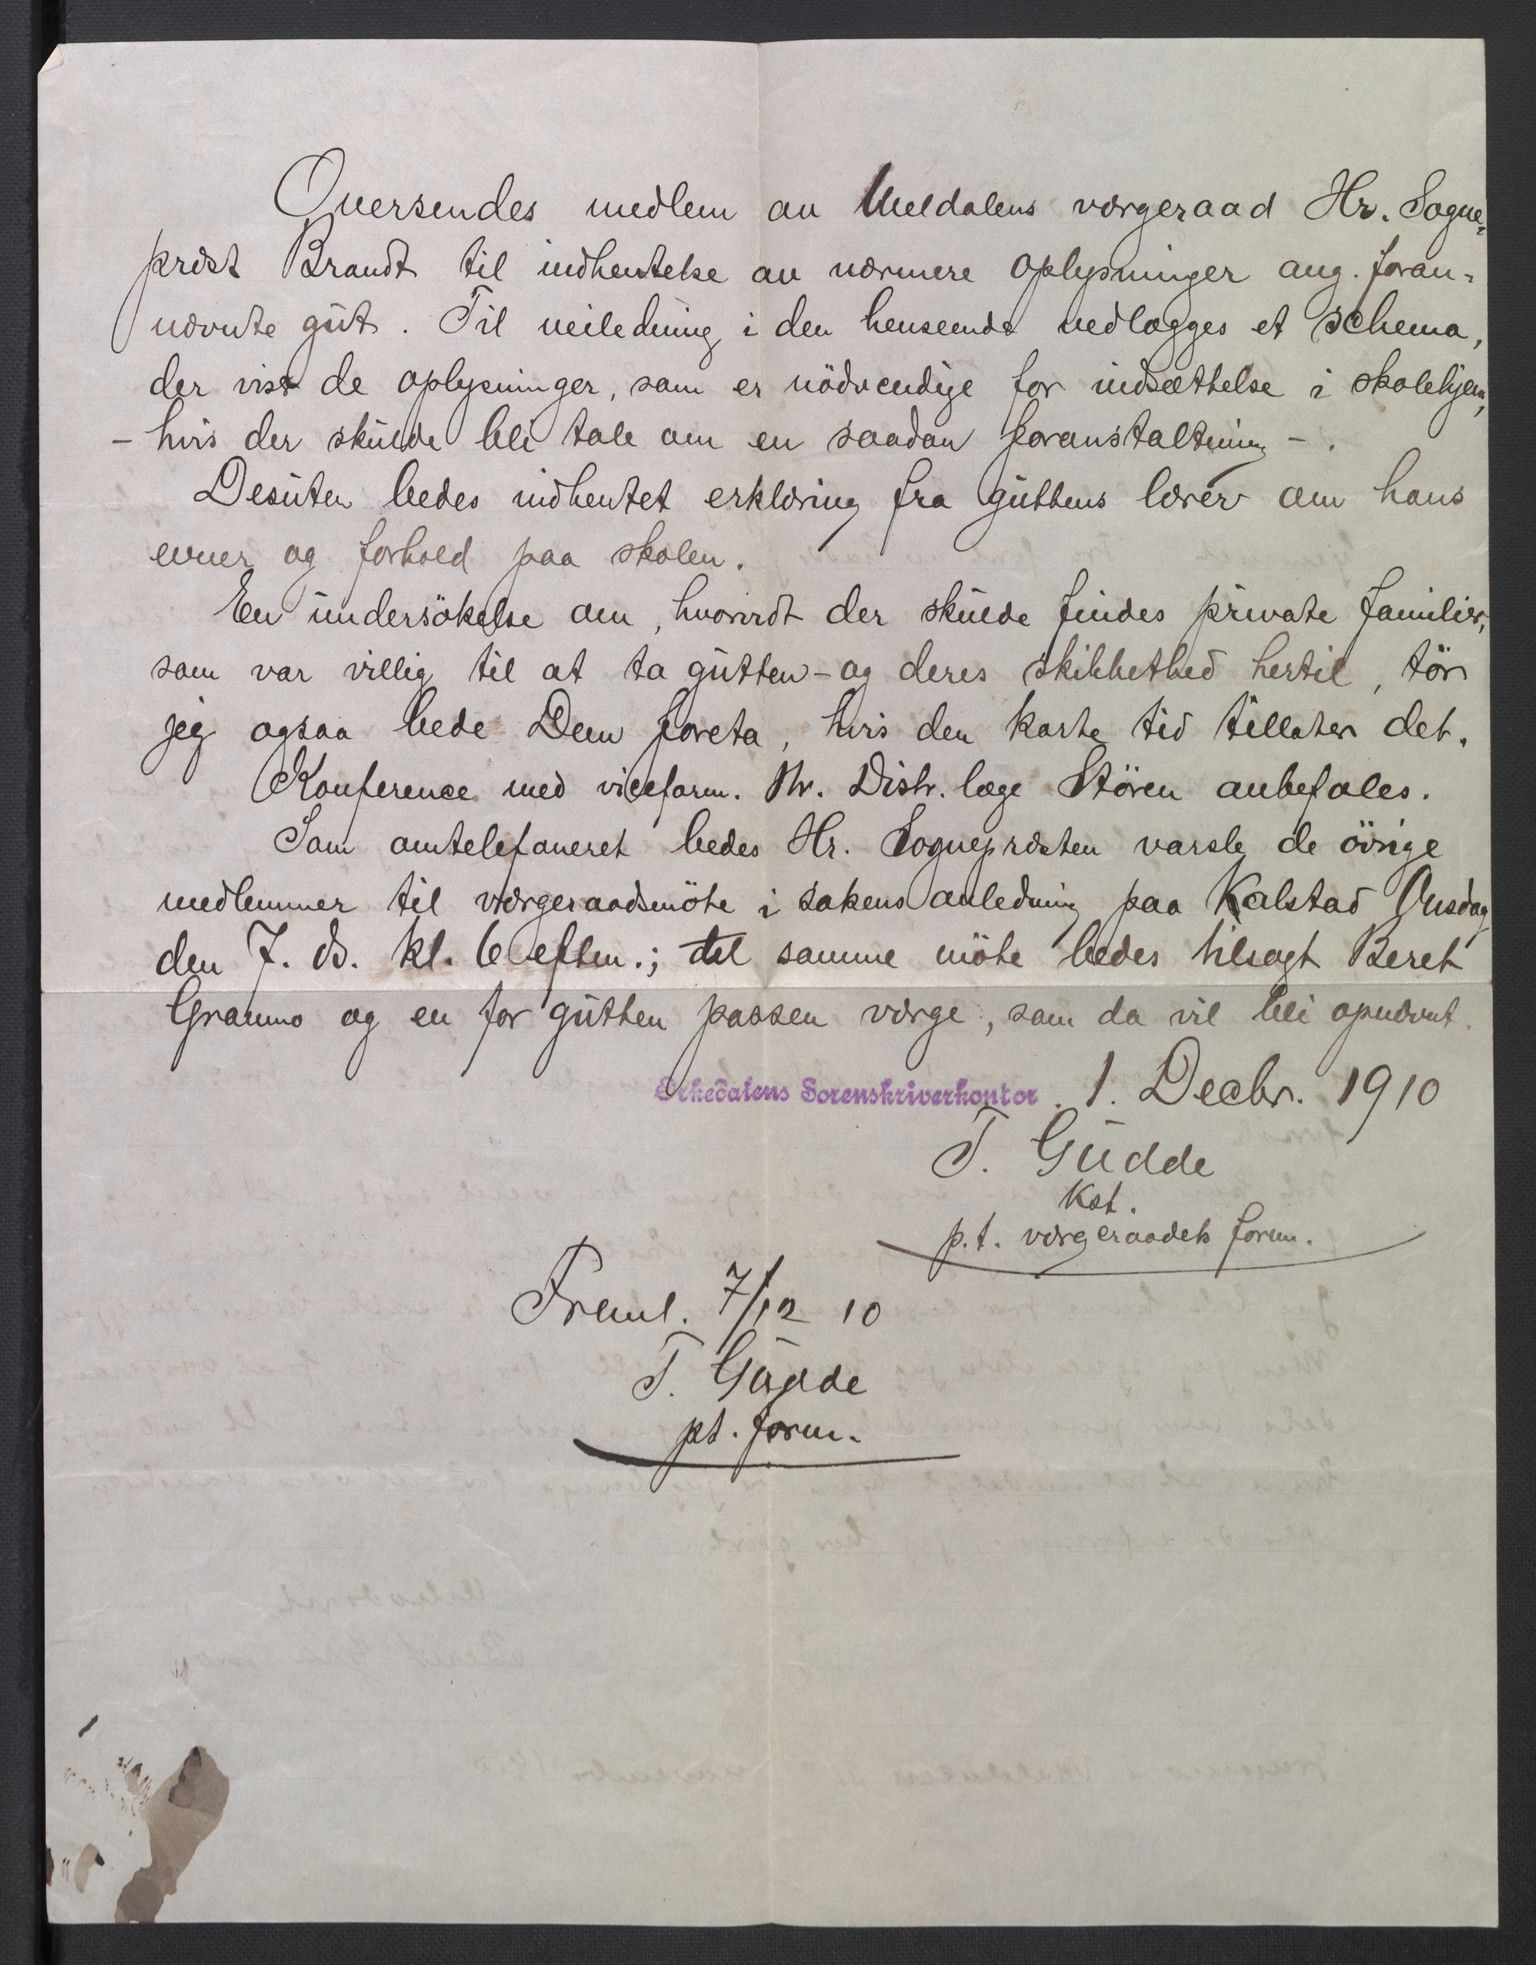 Oversendes medlem av Meldalens værgeraad Hr. Sogne-
præst Brandt til indhentelse av nærmere oplysninger ang. foran-
nævnte gut. Til veiledning i den henseende vedlægges et schema,
der viser de oplysninger, som er nödvendige for indsættelse i skolehjem,
- hvis der skulde bli tale om en saadan foranstaltning -.
Desuten bedes indhentet erklæring fra guttens lærer om hans
evner og forhold paa skolen.
En undersökelse om, hvorvidt der skulde findes private familier,
som var villig til at ta gutten - og deres skikkethed hertil, tör
jeg ogsaa bede Dem foreta, hvis den korte tid tillater det.
Konference med viceform. Hr. Distr. læge Stören anbefales.
Som omtelefoneret bedes Hr. Sognepræsten varsle de övrige
medlemmer til værgeraadsmöte i sakens anledning paa Kalstad Onsdag
den 7. ds. kl. 6 eftm.; til samme möte bedes tilsagt Beret
Gramo og en for gutten passen værge, som da vil bli opnævnt.
Orkedalens Sorenskriverkontor. 1. Decbr. 1910
T. Gudde
Kst.
p.t. værgeraadets form.
Freml. 7/12 10
T. Gudde
pt. form.